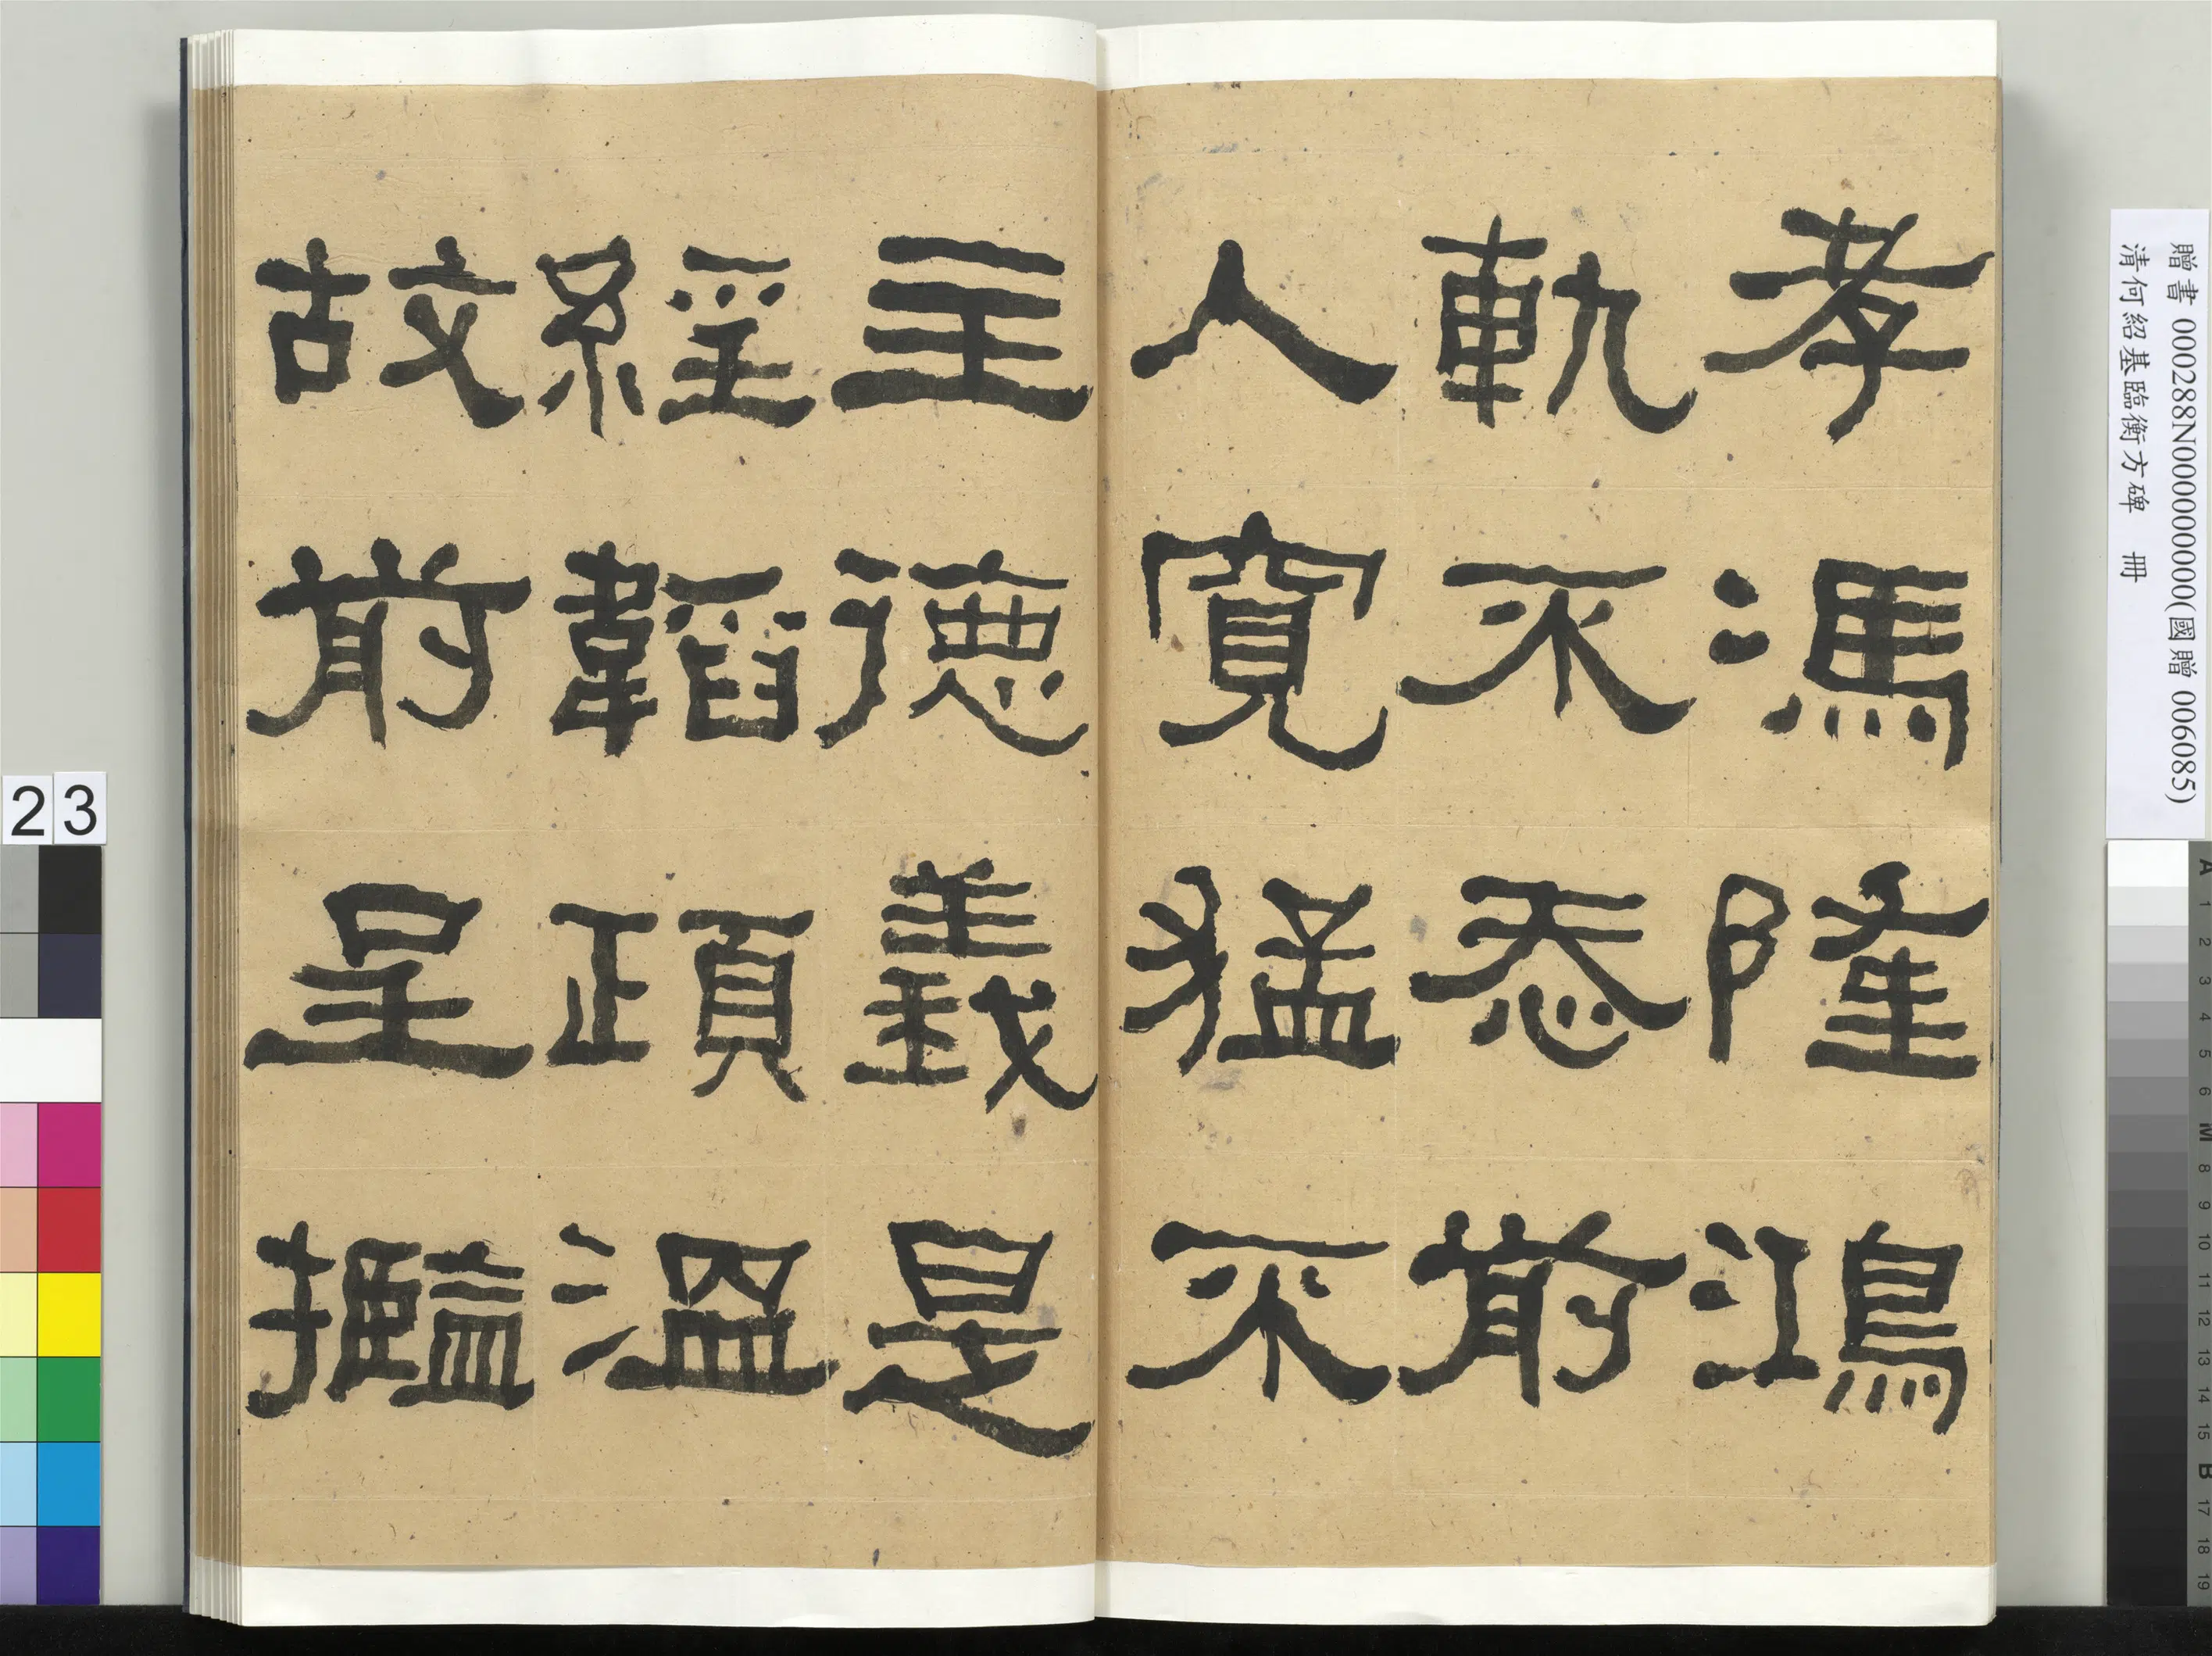 孝馮隆鴻
軌不忝前
人寬猛不
主德義是
經韜頙溫
故前呈㩜
贈書 000288N000000000(國贈 006085)
清何紹基臨衡方碑 冊
23
A 1 2 3 4 5 6 M 8 9 10 11 12 13 14 15 B 17 18 19